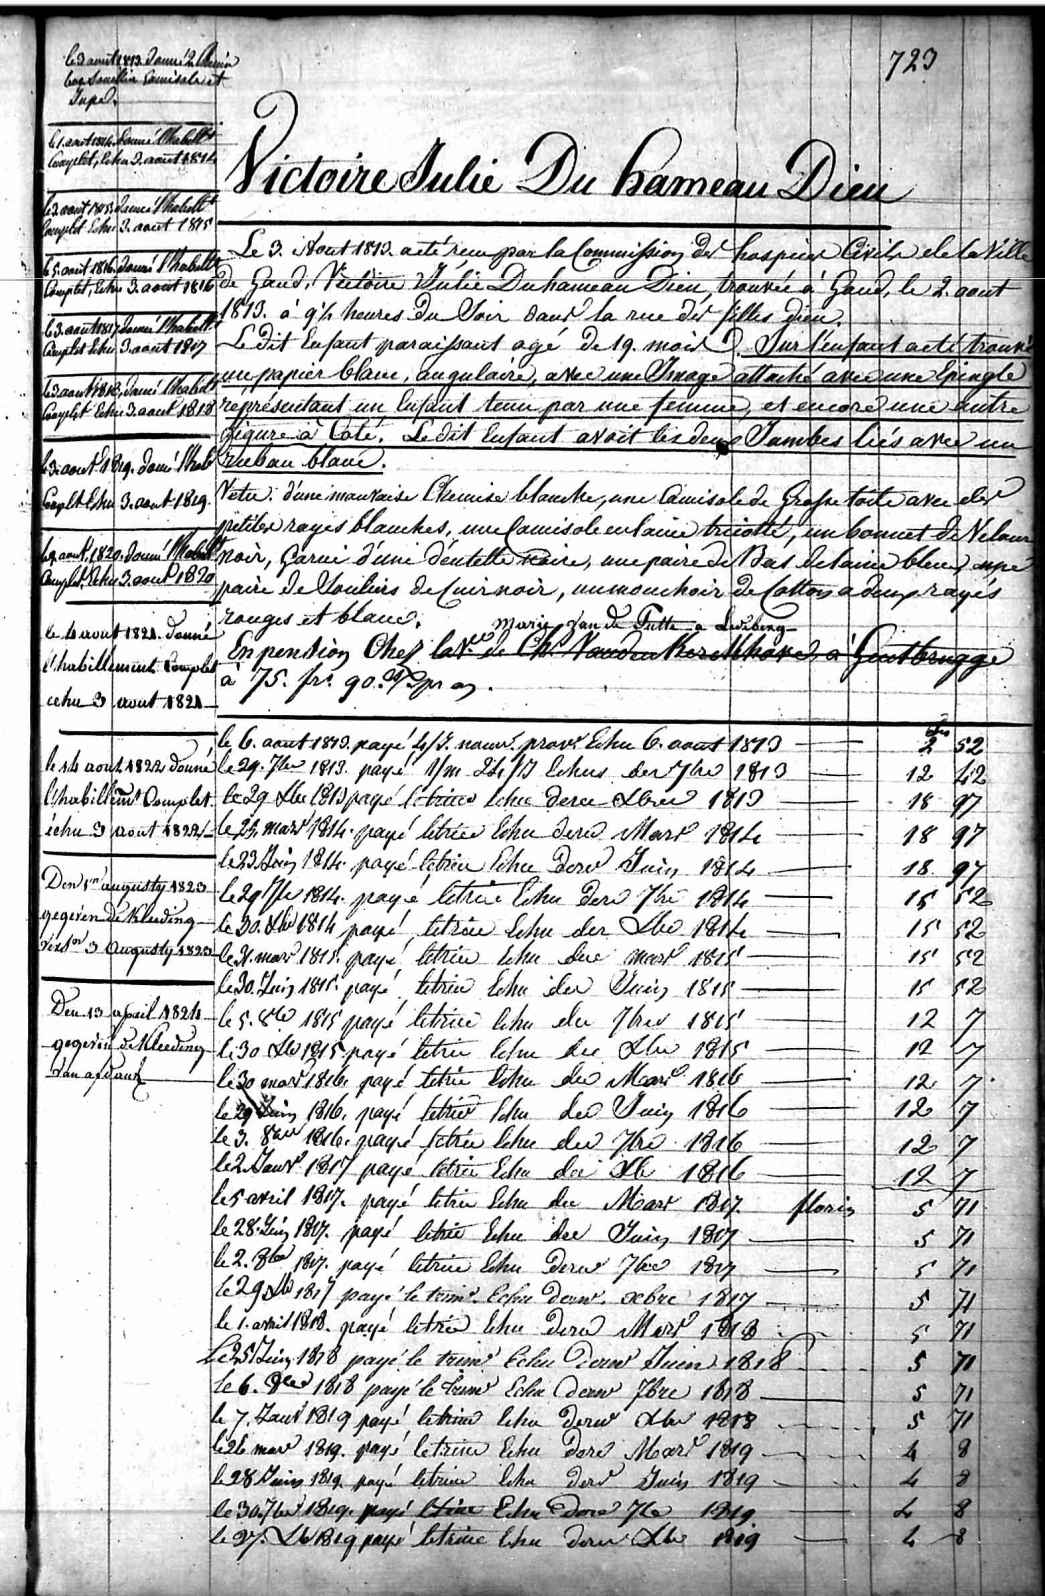 723
le 3 aout 1813 donné 2 Beguin
Camisole et
Jupe.
le 1. aout 1814. donné l'habillt
Complet, Echu 3. aout 1814
le 2 aout 1815 donné l'habillt
Complet Echu 3. aout 1815
le 5. aout 1816. donné l'habillt
Complet, Echu 3. aout 1816
le 3. aout 1817 donné l'habillt
Complet Echu 3. aout 1817
le 3 aout 1818, donné l'habillt
Complet Echu 3. aout 1818
le 3. aout 1819. donné l'hab
Complt Echu 3. aout 1819.
le 2 aout. 1820. donné l'habillt
Complet, Echu 3. aout 1820
le 4 aout 1821. donné
l'habillement Complet
echu 3 aout 1821
le 14 aout 1822 donné
l'habillemt Complet
échu 3 aout 1822
Den 1n augusty 1823
gegeven de Kleeding
3 augusty 1823
Den 13 april 1824
gegeven de Kleeding
Victoire Julie Du hameau Dieu
Le 3. Aout 1813. a été reçu par la Commission des hospices Civils de la Ville
de Gand, Victoire Julie Duhameau Dieu, trouvée à Gand, le 2. aout
1813. à 9½ heures du Soir dans la rue des filles dieu
Le dit Enfant paraissant agé de 19. mois. Sur l'enfant a été trouvé
un papier blanc, angulaire, avec une Image attaché avec une Epingle
représentant un Enfant tenu par une femme, et encore une autre
figure à Coté. Le dit Enfant avoit les deux Jambes liés avec un
ruban blanc.
Vetu. d'une mauvaise Chemise blanche, une Camisole de Grosse toile avec des
petites rayes blanches, une Camisole en laine tricotté, un bonnet de Velour
noir, Garni d'une dentelle noire, une paire de Bas de laine bleue, une
paire de Souliers de Cuir noir, un mouchoir de Cotton a deux rayés
rouges et blanc.
Marie Jean de Putte a Ledeberg
En pension Chez la Ve de Ch. Vanden Kerckhove, à Gentbrugge
à 75. frs. 90. Cs pr an.
le 6. aout 1813. payé 4/5. nourr. prov. Echu 6. aout 1813 2 52
le 29. 7bre 1813. payé 1/m 24/ Echus der 7bre 1813 12 42
le 29 Xbre 1813 payé le trim Echu dern Xbre 1813 18 97
le 24. mars 1814. payé le trim Echu dern Mars 1814 18 97
le 23 Juin 1814. payé le trim Echu dern Juin 1814 18 97
le 29 7bre 1814. payé le trim Echu dern 7bre 1814 15 52
le 30. Xbre 1814 payé le trim Echu der Xbre 1814 15 52
le 21. mars 1815. payé le trim Echu der mars 1815 15 52
le 30. Juin 1815. payé le trim Echu der Juin 1815 15 52
le 5. 8bre 1815 payé le trim Echu der 7bre 1815 12 7
le 30 Xbre 1815 payé le trim Echu der Xbre 1815 12 7
le 30 mars 1816. payé le trim Echu der Mars 1816 12 7
le 29 Juin 1816. payé le trim Echu der Juin 1816 12 7
le 3. 8bre 1816. payé le trim Echu der 7bre 1816 12 7
le 2 Janv. 1817 payé le trim Echu der Xb 1816 12 7
le 5 avril 1817. payé le trim Echu der Mars 1817 florin 5 71
le 28. Juin 1817. payé le trim Echu der Juin 1817 5 71
le 2. 8bre 1817. payé le trim Echu dern 7bre 1817 5 71
le 29 Xb 1817 payé le trimr. Echu dernr. xbre 1817 5 71
le 1. avril 1818. payé le trim Echu dern Mars 1818 5 71
Le 25 Juin 1818 payé le trimr Echu dernr Juin 1818 5 71
le 6. 8bre 1818 payé le trimr Echu dernr 7bre 1818 5 71
le 7. Janv 1819 payé le trim Echu dern Xbre 1818 5 71
le 26 mars 1819. payé le trim Echu dern Mars 1819 4 8
le 28 Juin 1819. payé le trim Echu dern Juin 1819 4 8
le 30. 7bre 1819. payé le trim Echu dern 7bre 1819. 4 8
le 27. Xb 1819 payé le trim Echu dern Xbre 1819 4 8